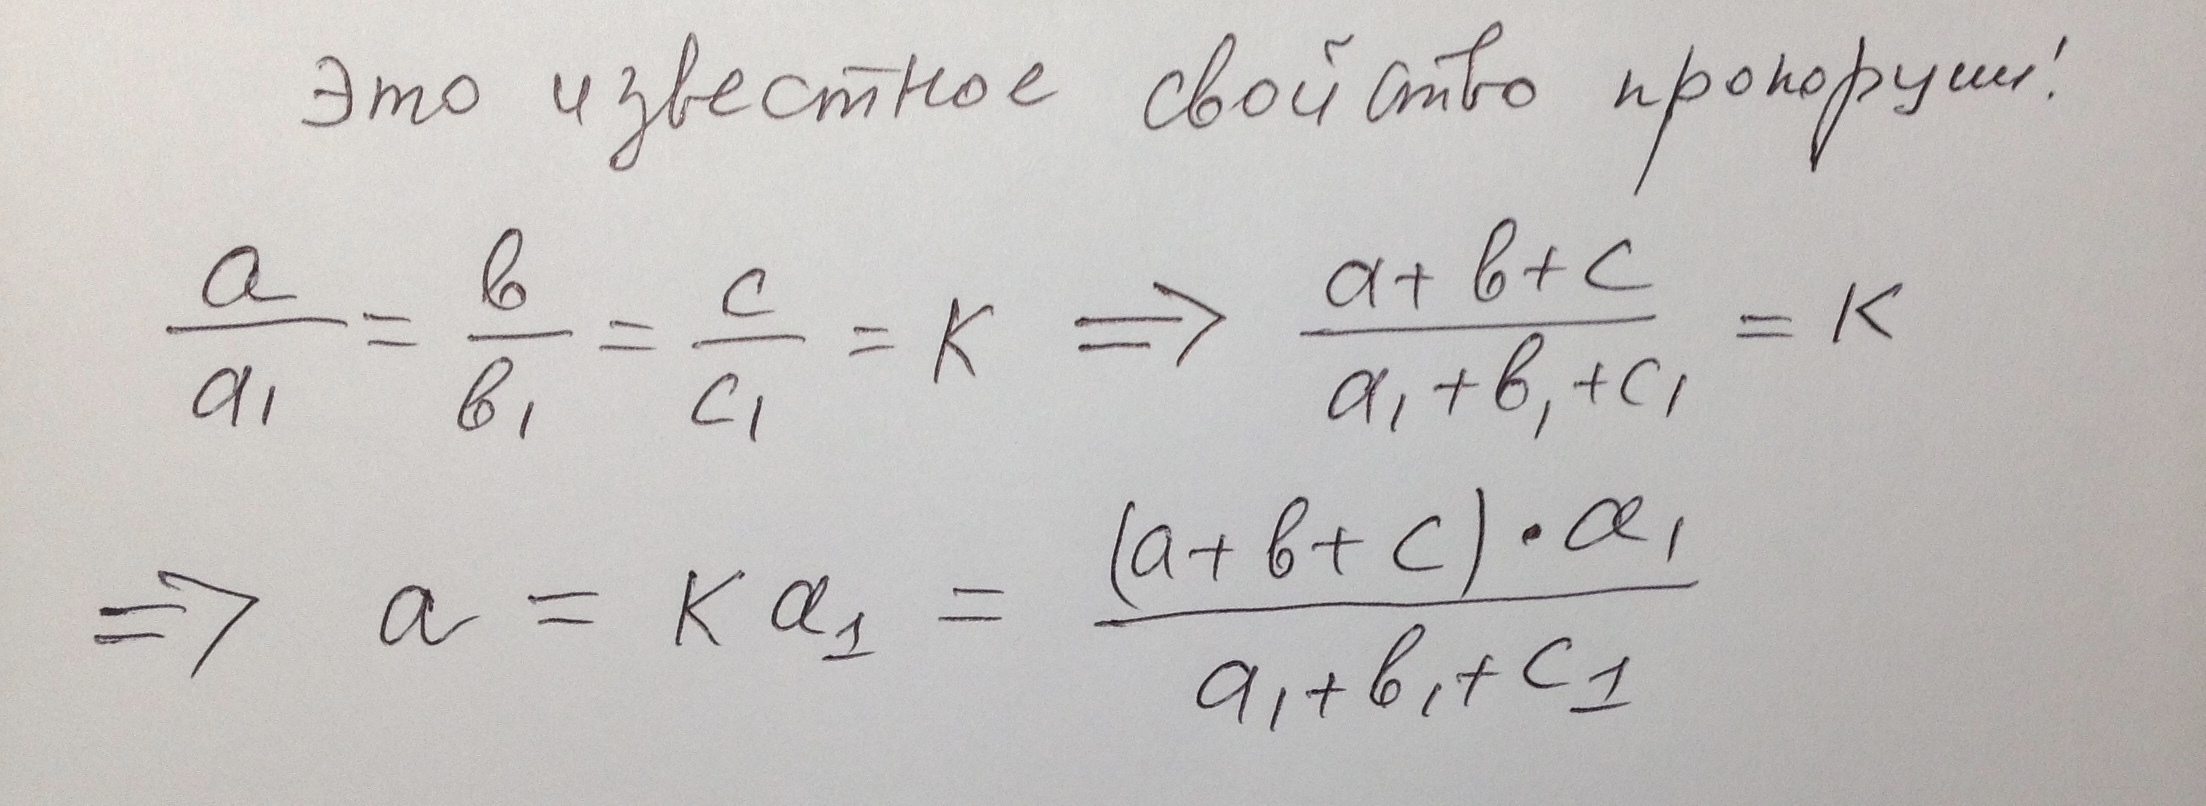 Это известное свойство пропорции!
a/a₁ = в/в₁ = c/c₁ = K ⇒ (a+в+c)/(a₁+в₁+c₁) = K
⇒ a = K a₁ = ((a+в+c)·a₁)/(a₁+в₁+c₁)